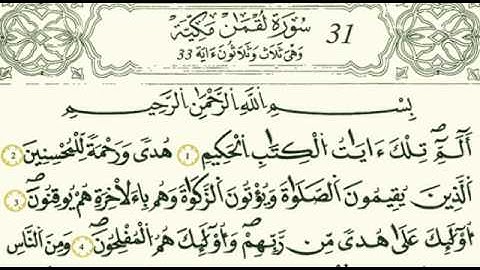 31 سُورَةُ لُقْمَٰنَ مَكِّيَّةٌ
وَهْىَ ثَلَاثٌ وَثَلَاثُونَ ءَايَةً 33
بِسْمِ اللَّهِ الرَّحْمَٰنِ الرَّحِيمِ
أَلَٓمِّٓۖ تِلْكَ ءَايَٰتُ الْكِتَٰبِ الْحَكِيمِ 1 هُدىً وَرَحْمَةً لِّلْمُحْسِنِينَ 2
الَّذِينَ يُقِيمُونَ الصَّلَوٰةَ وَيُؤْتُونَ الزَّكَوٰةَ وَهُم بِالَاخِرَةِ هُمْ يُوقِنُونَۖ 3
أُوْلَٰٓئِكَ عَلَىٰ هُدىً مِّن رَّبِّهِمْۖ وَأُوْلَٰٓئِكَ هُمُ الْمُفْلِحُونَۖ 4 وَمِنَ النَّاسِ